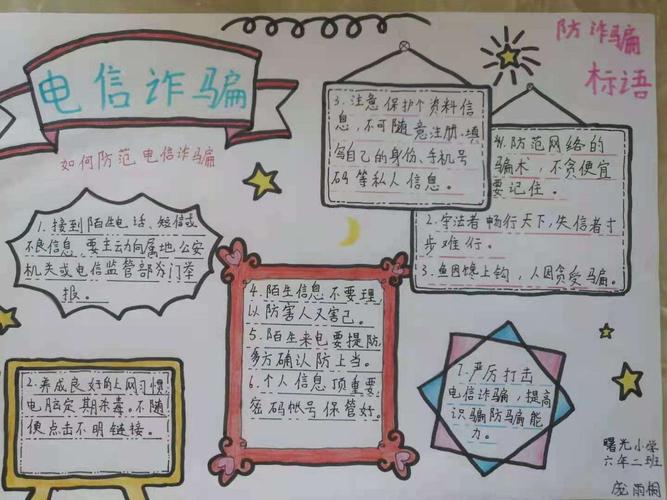 电信诈骗
如何防范电信诈骗
1.接到陌生电话、短信或
不良信息,要主动向属地公安
机关或电信监管部分门举
报。
2.养成良好的上网习惯,
电脑定期杀毒。不随
便点击不明链接。
3.注意保护个资料信
息,不可随意注册,填
写自己的身份、手机号
码等私人信息。
4.陌生信息不要理,
以防害人又害己。
5.陌生来电要提防,
多方确认防上当。
6.个人信息顶重要,
密码帐号保管好。
7.严厉打击
电信诈骗,提高
识骗防骗能
力。
防诈骗
标语
防范网络的
骗术,不贪便宜
要记住。
2.守法者畅行天下,失信者寸
步难行。
3.鱼因馋上钩,人因贪受骗。
曙光小学
六年二班
庞雨桐